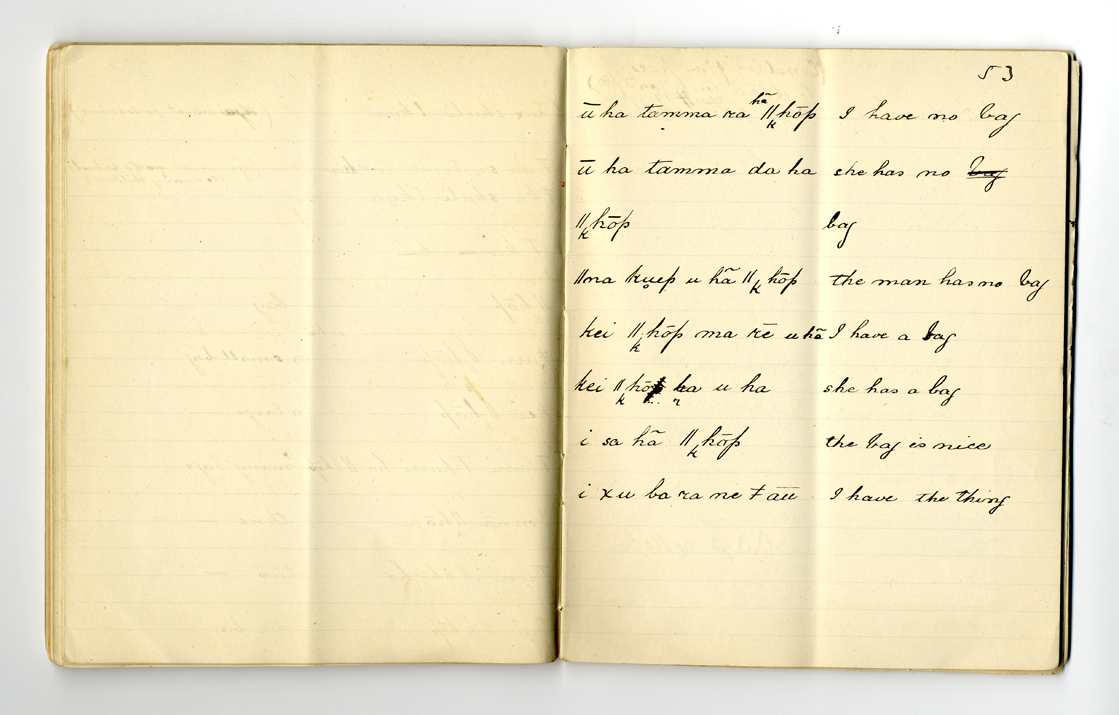 53
ū ha tamma ra hã ǁkhōp I have no bag
ū ha tamma da ha she has no bag
ǁkhōp bag
ǁna kuep u hã ǁkhōp the man has no bag
kei ǁkhōp ma rē u hã I have a bag
kei ǁkhō ha u ha she has a bag
i sa hã ǁkhōp the bag is nice
i xu ba ra ne ǂ āū I have the thing